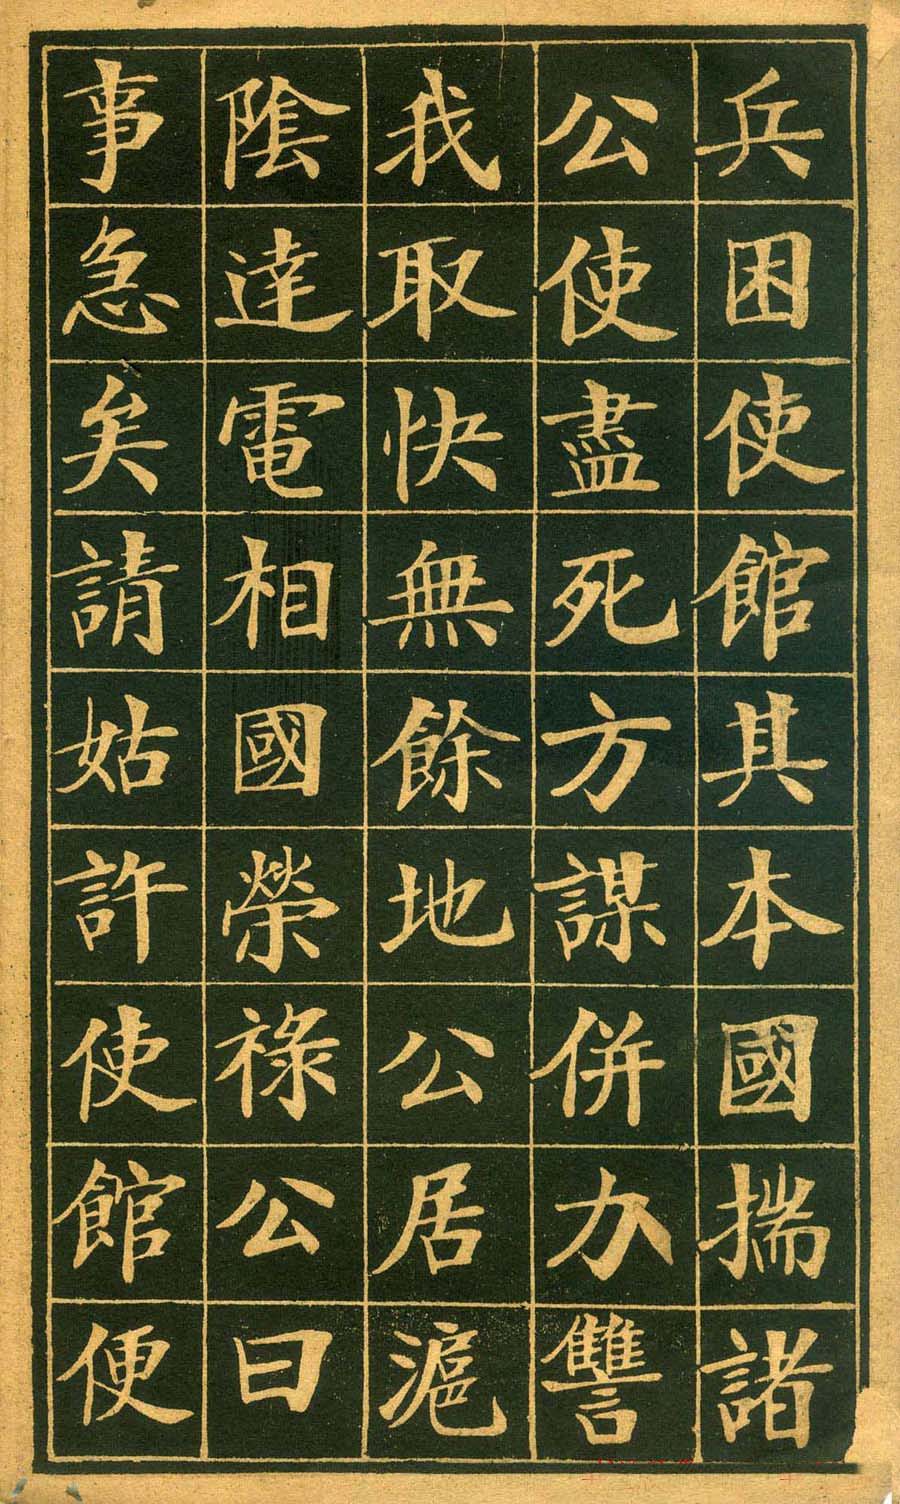 兵困使館其本國揣諸
公使盡死方謀併力讐
我取快無餘地公居滬
陰達電相國榮祿公曰
事急矣請姑許使館便